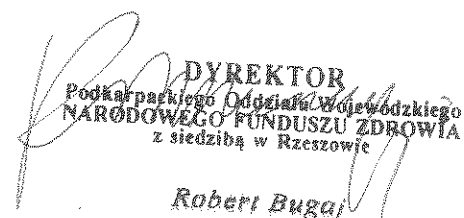 DYREKTOR
Podkarpackiego Oddziału Wojewódzkiego
NARODOWEGO FUNDUSZU ZDROWIA
z siedzibą w Rzeszowie
Robert Bugaj